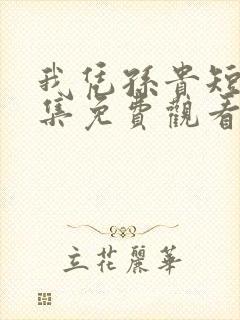 我凭孫貴短
集免費觀看
立花麗華